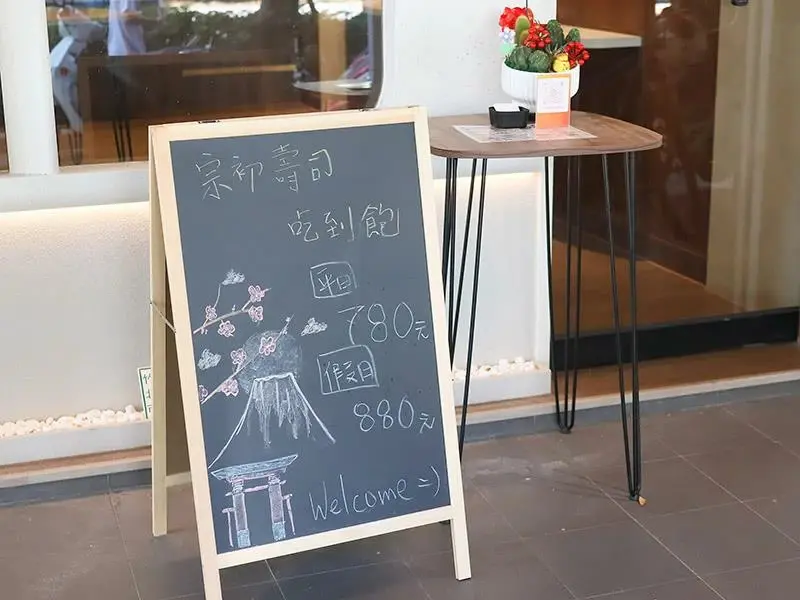 宗初壽司
吃到飽
平日
780元
假日
880元
Welcome =)